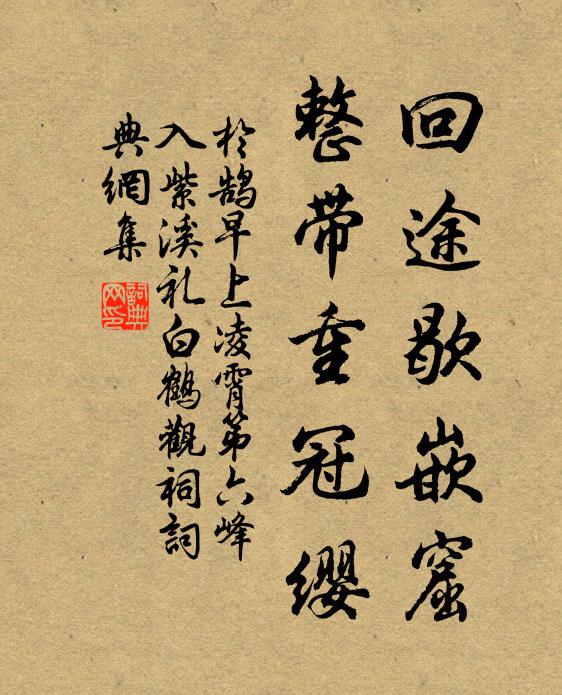 回途歇嵌窟
整带重冠缨
於鹄早上凌霄第六峰
入紫溪礼白鹤觀祠詞
典網集
詞典网印